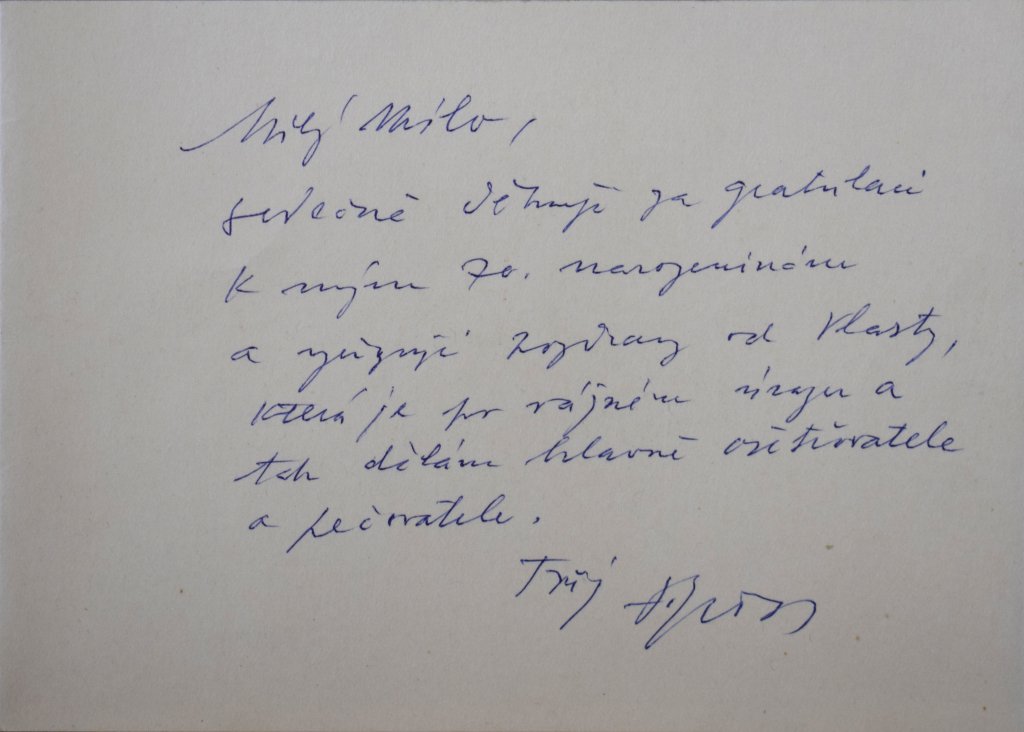 Milý Mílo,
srdečně děkuji za gratulaci
k mým 70. narozeninám
a vyřizuji pozdravy od Vlasty,
která je po vážném úrazu a
tak dělám hlavně ošetřovatele
a pečovatele.
Tvůj